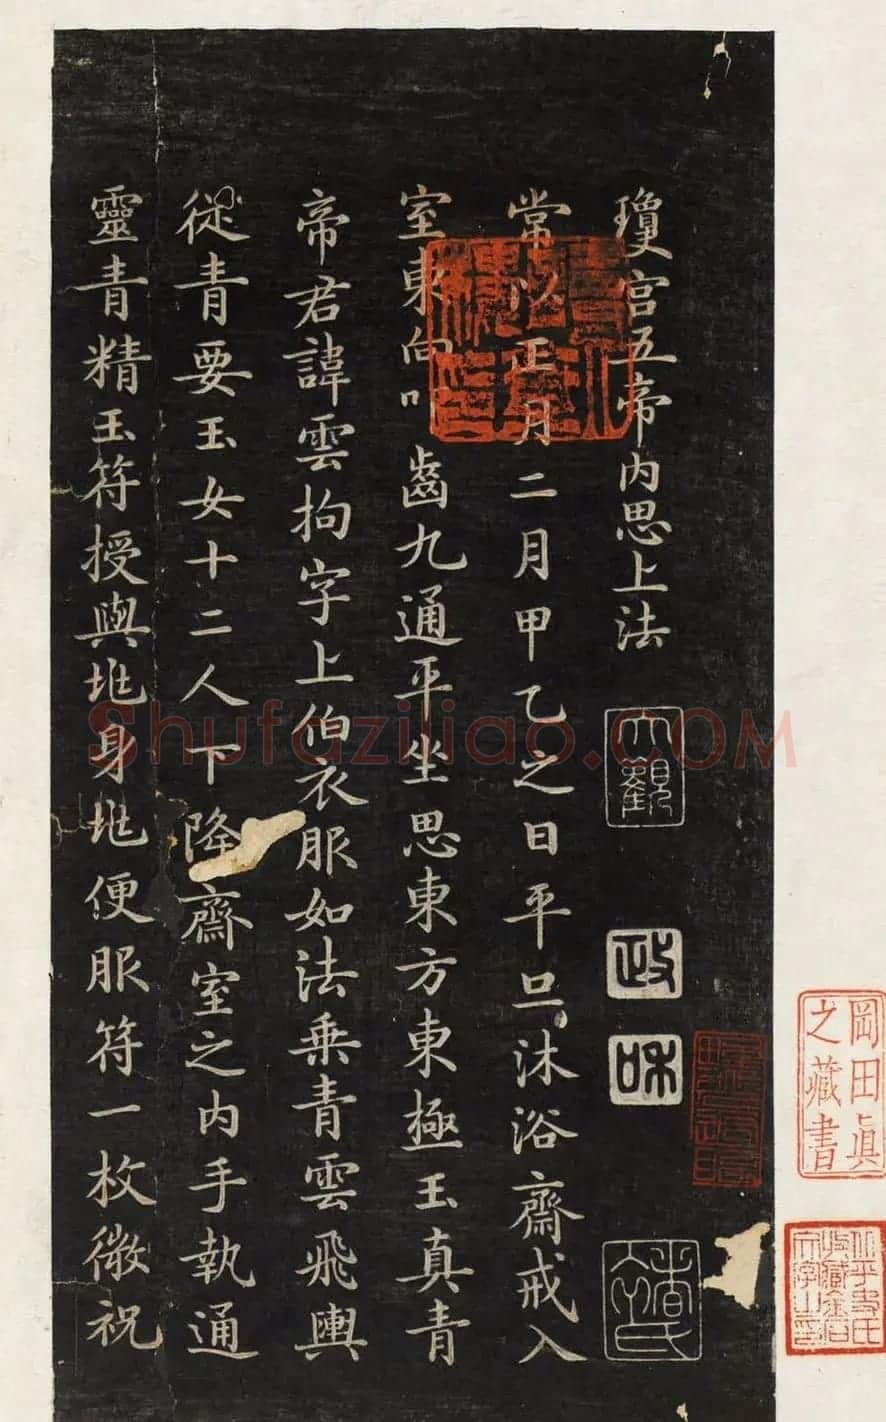 瓊宮五帝內思上法
大觀
政和
常以正月二月甲乙之日平旦沐浴齋戒入
室東向叩齒九通平坐思東方東極玉真青
帝君諱雲拘字上伯衣服如法乗青雲飛輿
從青要玉女十二人下降齋室之內手執通
靈青精玉符授與兆身兆便服符一枚微祝
岡田真
之藏書
Shufaziliao.COM